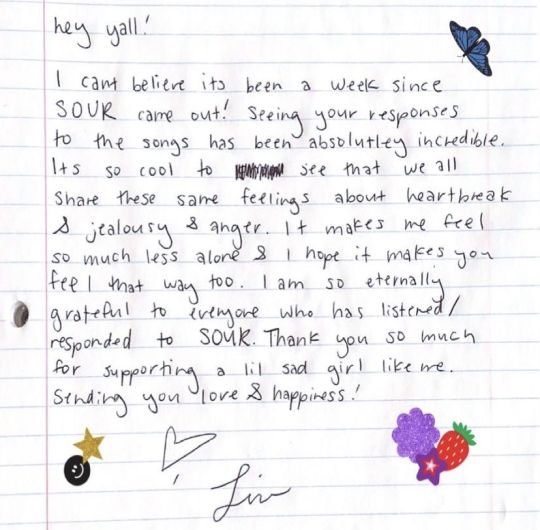 hey yall!
I cant believe its been a week since
SOUR came out! Seeing your responses
to the songs has been absolutley incredible.
Its so cool to see that we all
share these same feelings about heartbreak
& jealousy & anger. It makes me feel
so much less alone & I hope it makes you
feel that way too. I am so eternally
grateful to everyone who has listened/
responded to SOUR. Thank you so much
for supporting a lil sad girl like me.
Sending you love & happiness!
Liv